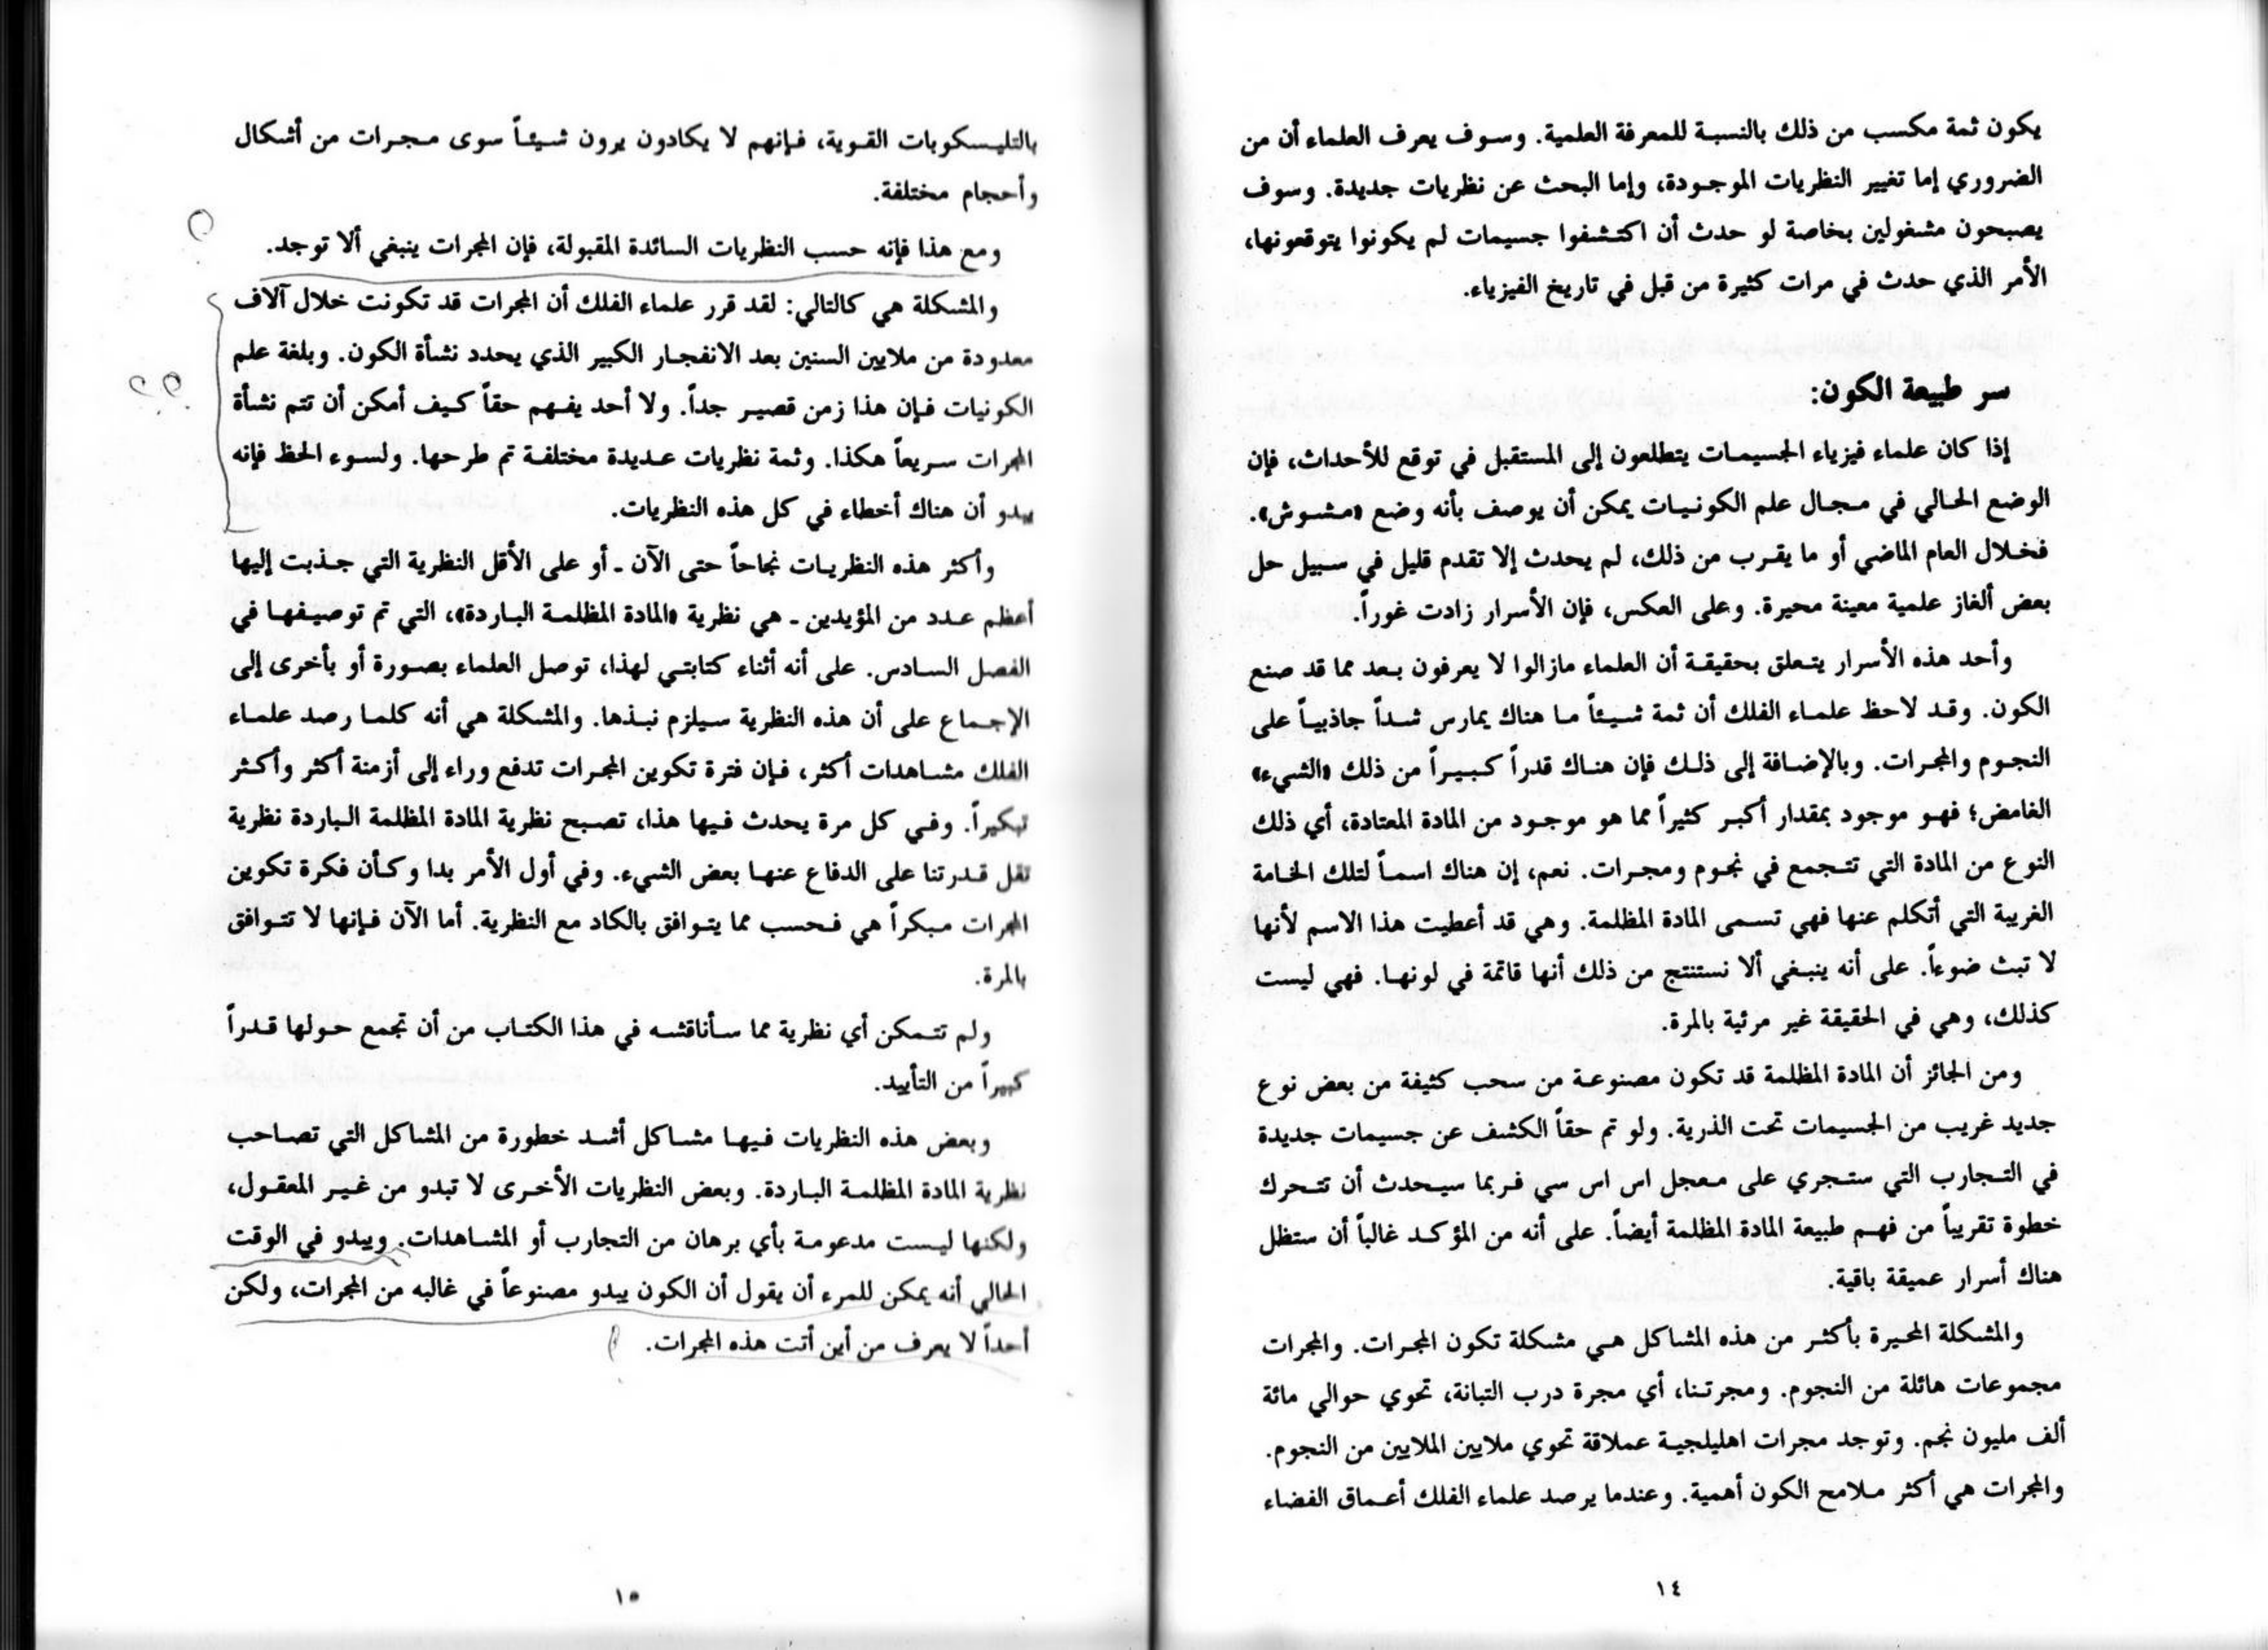 يكون ثمة مكسب من ذلك بالنسبة للمعرفة العلمية. وسوف يعرف العلماء أن من
الضروري إما تغيير النظريات الموجودة، وإما البحث عن نظريات جديدة. وسوف
يصبحون مشغولين بخاصة لو حدث أن اكتشفوا جسيمات لم يكونوا يتوقعونها،
الأمر الذي حدث في مرات كثيرة من قبل في تاريخ الفيزياء.
سر طبيعة الكون:
إذا كان علماء فيزياء الجسيمات يتطلعون إلى المستقبل في توقع للأحداث، فإن
الوضع الحالي في مجال علم الكونيات يمكن أن يوصف بأنه وضع «مشوش».
فخلال العام الماضي أو ما يقرب من ذلك، لم يحدث إلا تقدم قليل في سبيل حل
بعض ألغاز علمية معينة محيرة. وعلى العكس، فإن الأسرار زادت غوراً.
وأحد هذه الأسرار يتعلق بحقيقة أن العلماء مازالوا لا يعرفون بعد مما قد صنع
الكون. وقد لاحظ علماء الفلك أن ثمة شيئاً ما هناك يمارس شداً جاذبياً على
النجوم والمجرات. وبالإضافة إلى ذلك فإن هناك قدراً كبيراً من ذلك «الشيء»
الغامض؛ فهو موجود بمقدار أكبر كثيراً مما هو موجود من المادة المعتادة، أي ذلك
النوع من المادة التي تتجمع في نجوم ومجرات. نعم، إن هناك اسماً لتلك الخامة
الغريبة التي أتكلم عنها فهي تسمى المادة المظلمة. وهي قد أعطيت هذا الاسم لأنها
لا تبث ضوءاً. على أنه ينبغي ألا نستنتج من ذلك أنها قاتمة في لونها. فهي ليست
كذلك، وهي في الحقيقة غير مرئية بالمرة.
ومن الجائز أن المادة المظلمة قد تكون مصنوعة من سحب كثيفة من بعض نوع
جديد غريب من الجسيمات تحت الذرية. ولو تم حقاً الكشف عن جسيمات جديدة
في التجارب التي ستجري على معجل اس اس سي فربما سيحدث أن تتحرك
خطوة تقريباً من فهم طبيعة المادة المظلمة أيضاً. على أنه من المؤكد غالباً أن ستظل
هناك أسرار عميقة باقية.
والمشكلة المحيرة بأكثر من هذه المشاكل هي مشكلة تكون المجرات. والمجرات
مجموعات هائلة من النجوم. ومجرتنا، أي مجرة درب التبانة، تحوي حوالي مائة
ألف مليون نجم. وتوجد مجرات اهليلجية عملاقة تحوي ملايين الملايين من النجوم.
والمجرات هي أكثر ملامح الكون أهمية. وعندما يرصد علماء الفلك أعماق الفضاء
١٤
بالتليسكوبات القوية، فإنهم لا يكادون يرون شيئاً سوى مجرات من أشكال
وأحجام مختلفة.
ومع هذا فإنه حسب النظريات السائدة المقبولة، فإن المجرات ينبغي ألا توجد.
والمشكلة هي كالتالي: لقد قرر علماء الفلك أن المجرات قد تكونت خلال آلاف
معدودة من ملايين السنين بعد الانفجار الكبير الذي يحدد نشأة الكون. وبلغة علم
الكونيات فإن هذا زمن قصير جداً. ولا أحد يفهم حقاً كيف أمكن أن تتم نشأة
المجرات سريعاً هكذا. وثمة نظريات عديدة مختلفة تم طرحها. ولسوء الحظ فإنه
يبدو أن هناك أخطاء في كل هذه النظريات.
وأكثر هذه النظريات نجاحاً حتى الآن ـ أو على الأقل النظرية التي جذبت إليها
أعظم عدد من المؤيدين ـ هي نظرية «المادة المظلمة الباردة»، التي تم توصيفها في
الفصل السادس. على أنه أثناء كتابتي لهذا، توصل العلماء بصورة أو بأخرى إلى
الإجماع على أن هذه النظرية سيلزم نبذها. والمشكلة هي أنه كلما رصد علماء
الفلك مشاهدات أكثر، فإن فترة تكوين المجرات تدفع وراء إلى أزمنة أكثر وأكثر
تبكيراً. وفي كل مرة يحدث فيها هذا، تصبح نظرية المادة المظلمة الباردة نظرية
تقل قدرتنا على الدفاع عنها بعض الشيء. وفي أول الأمر بدا وكأن فكرة تكوين
المجرات مبكراً هي فحسب مما يتوافق بالكاد مع النظرية. أما الآن فإنها لا تتوافق
بالمرة.
ولم تتمكن أي نظرية مما سأناقشه في هذا الكتاب من أن تجمع حولها قدراً
كبيراً من التأييد.
وبعض هذه النظريات فيها مشاكل أشد خطورة من المشاكل التي تصاحب
نظرية المادة المظلمة الباردة. وبعض النظريات الأخرى لا تبدو من غير المعقول،
ولكنها ليست مدعومة بأي برهان من التجارب أو المشاهدات. ويبدو في الوقت
الحالي أنه يمكن للمرء أن يقول أن الكون يبدو مصنوعاً في غالبه من المجرات، ولكن
أحداً لا يعرف من أين أتت هذه المجرات.
١٥